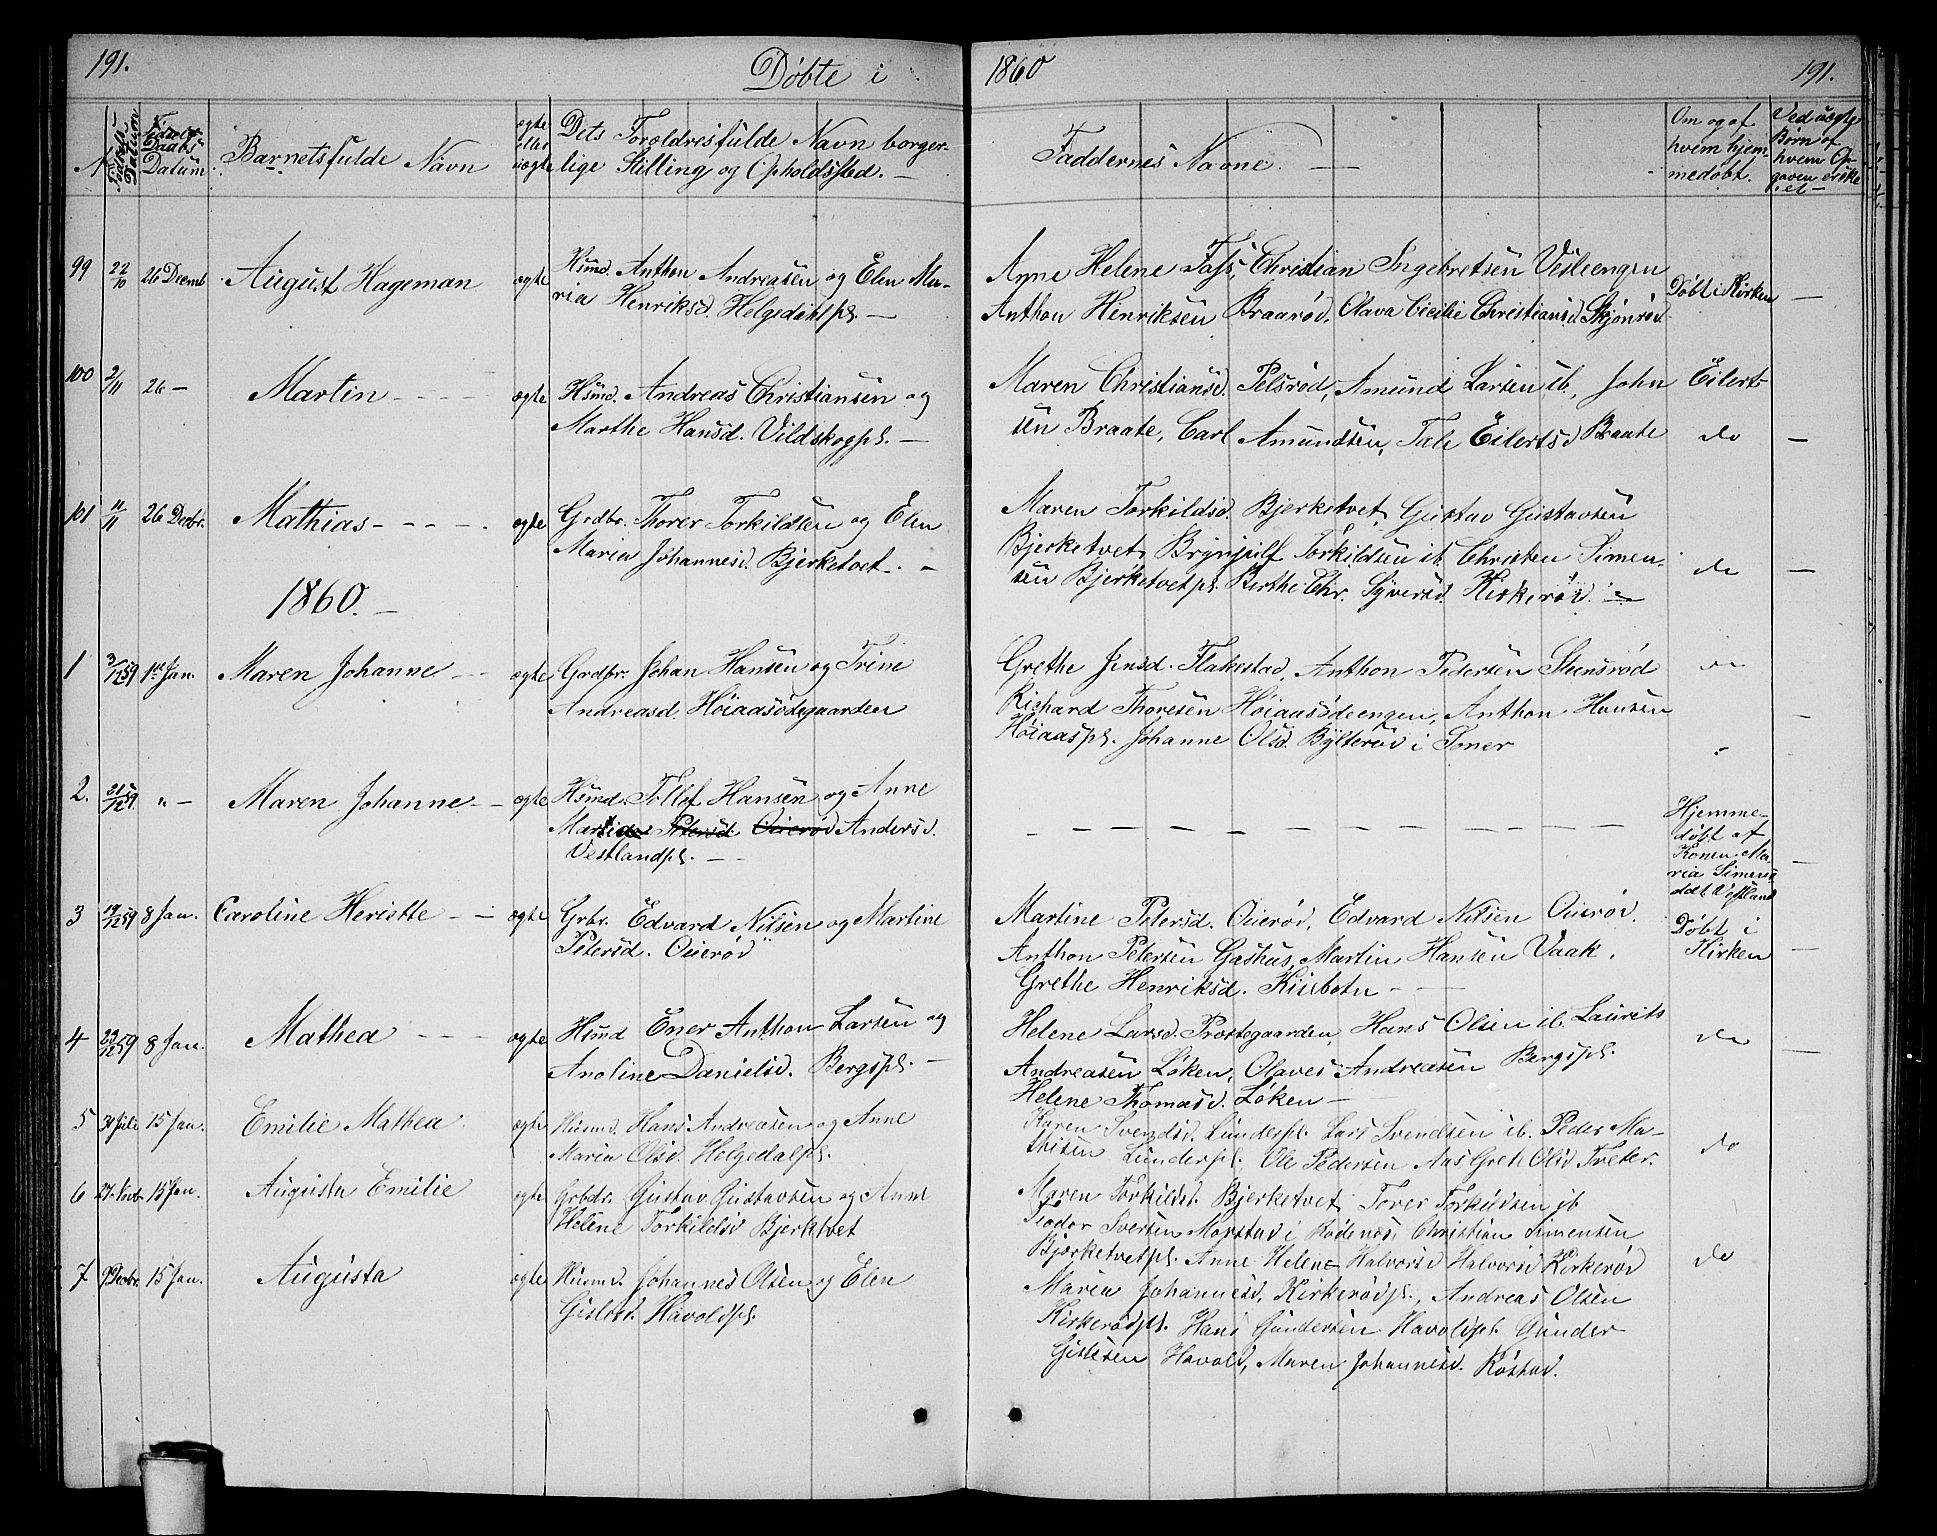 191. Døbte i 1860 191.
N Fødsels Datum Daabs Datum Barnets fulde Navn ægte eller uægte Dets Forældres fulde Navn borger-
lige Stilling og Opholdssted. Faddernes Navne. Om og af hvem hjem medøbt. Ved uægte Børn af hvem Op-
99 22/10 26 Decemb August Hageman ægte Husmd. Anthon Andreasen og Elen Ma-
ria Henriksd. Helgedahlpl. —
Anne Helene Foss, Christian Ingebretsen Vesleengen
Anthon Henriksen Braarød, Olava Cecilie Christiansd. Skjønrød
Døbt i Kirken —
100 2/11 26 — Martin ægte Husmd. Andreas Christiansen og
Marthe Hansd. Vildskogpl. —
Maren Christiansd. Pelsrød, Amund Larsen ib., John Eilert-
sen Braate, Carl Amundsen, Tale Eilertsd Braate
do —
101 11/11 26 Decbr. Mathias ægte Grdbr. Thorer Torkildsen og Elen
Maria Johannesd. Bjerketvet. —
Maren Torkildsd. Bjerketvet, Gustav Gustavsen
Bjerketvet, Brynjulf Torkildsen ib. Christen Simen-
sen Bjerketvetpl. Berthe Chr. Syversd. Kirkerød.
do —
1860. —
1 3/12 59 1ste Jan. Maren Johanne ægte Grdbr. Johan Hansen og Trine
Andreasd. Høiaasødegaarden
Grethe Jensd. Flakestad, Anthon Pedersen Steensrød
Richard Thoresen Høiaasødeengen, Anthon Hansen
Høiaaspl. Johanne Olsd. Bylterød i Soner
do —
2. 21/12 59. " — Maren Johanne ægte Husmd. Tollef Hansen og Anne
Mari Petersd. Ouerød Andersd.
Vestlandpl. —
Hjemme-
døbt af
Konen Ma-
ria Simensd
Vestland
—
3 19/12 59 8 Jan. Caroline Heriette ægte Grbr. Edvard Nilsen og Martine
Petersd. Ouerød
Martine Petersd. Ouerød, Edvard Nilsen Ouerød.
Anthon Petersen Gashus, Martin Hansen Vaak.
Grethe Henriksd.
Døbt i
Kirken —
4 23/12 59 8 Jan. Mathea ægte Husmd Ener Anthon Larsen og
Anoline Danielsd. Bergspl. —
Helene Larsd. Prostegaarden, Hans Olsen ib. Laurits
Andreasen Løken, Olaves Andreasen Bergspl.
Helene Thomasd. Løken —
do —
5 31 Juli 15 Jan. Emilie Mathea ægte Husmd. Hans Andreasen og Anne
Maria Olsd. Helgedalpl.
Karen Svendsd. Lunderpl. Lars Svendsen ib. Peder Ma-
thisen Lunderpl. Ole Pedersen Aas Greth Olsd Treter.
do
6 27 Novb. 15 Jan. Augusta Emilie ægte Grbdr. Gustav Gustavsen og Anne
Helene Torkildsd Bjerktvet
Maren Torkildsd. Bjerketvet, Torer Torkildsen ib
Teodor Svertsen Morstad i Rødenæs, Christian Simensen
Bjærketvetpl. Anne Helene Halvorsd Halvorsd Kirkerød
do
7 9 Decbr. 15 Jan. Augusta ægte Husmd. Johannes Olsen og Elen
Gislesd. Havoldpl.
Maria Johannesd. Kirkerødpl., Andreas Olsen
Kirkerødpl. Hans Gundersen Havoldpl. Gunder
Gislesen Havold, Maren Johannesd. Røstad.